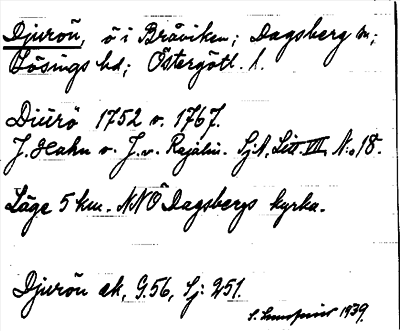 Djurön, ö i Bråviken; Dagsberg sn;
Lösings hd; Östergötl. l.
Diurö 1752 o. 1767.
J. Hahn o. J. v. Rajalin. SjA, Litt III, N:o 18.
Läge 5 km. NNÖ Dagsbergs kyrka.
Djurön ek, G.56, Sj: 251.
S. 1939.